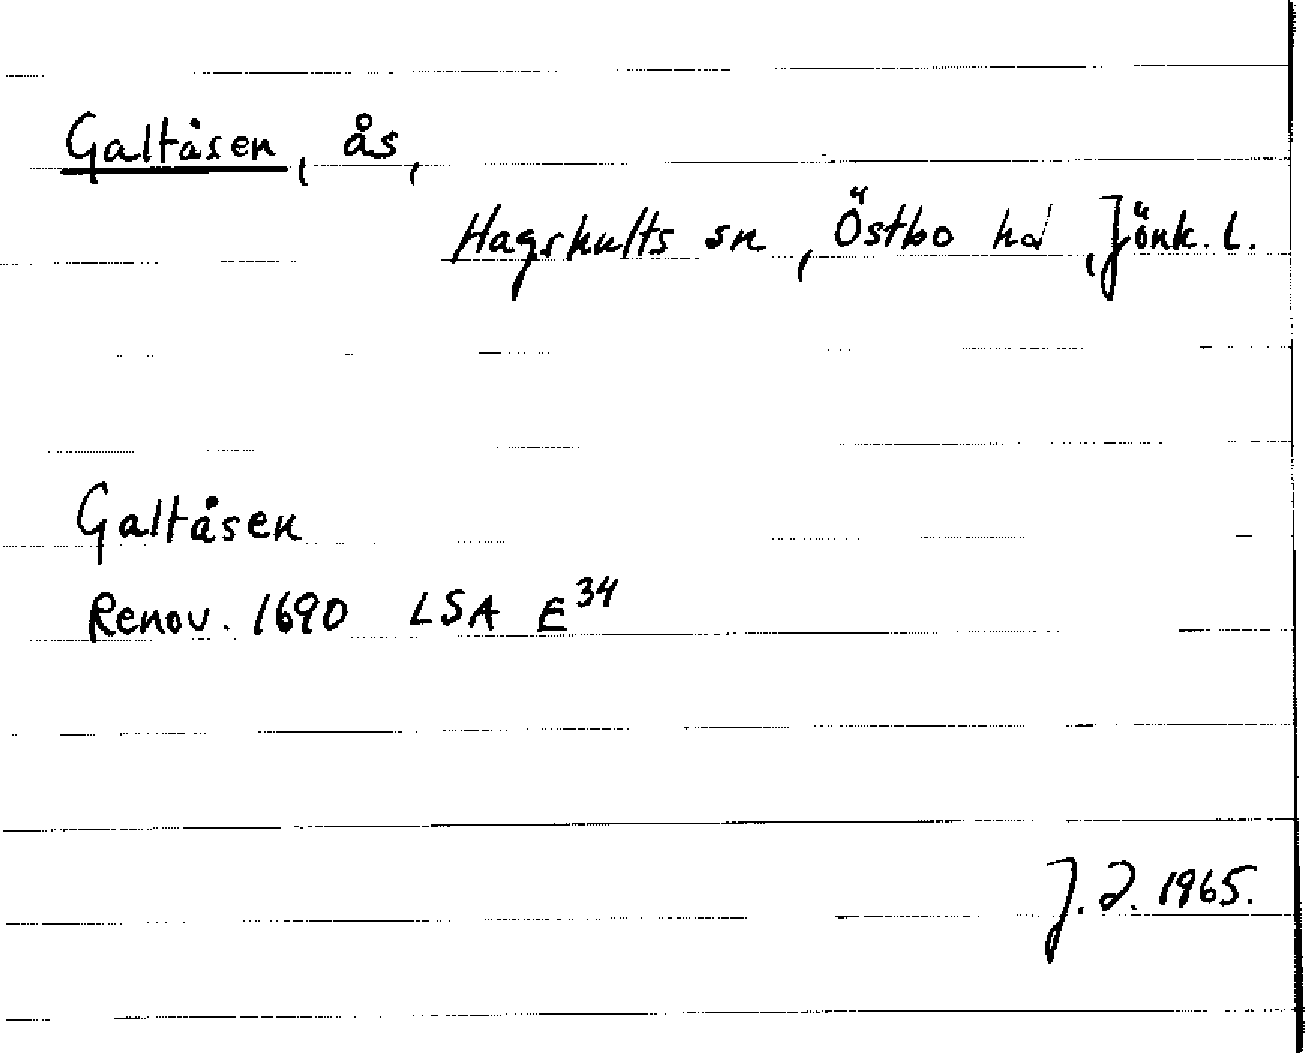 Galtåsen, ås,
Hagshults sn, Östbo hd, Jönk. l.
Galtåsen
Renov. 1690 LSA E34
J. 1965.